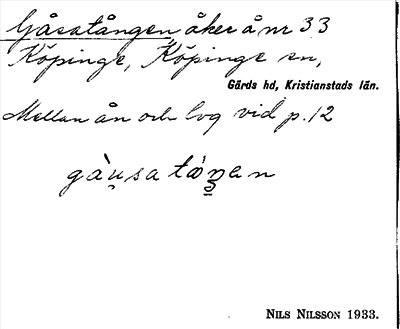 Gåsatången åker å nr 33
Köpinge, Köpinge sn,
Gärds hd, Kristianstads län.
Mellan ån och lvg vid p. 12
gàu̯satáŋen
NILS NILSSON 1933.